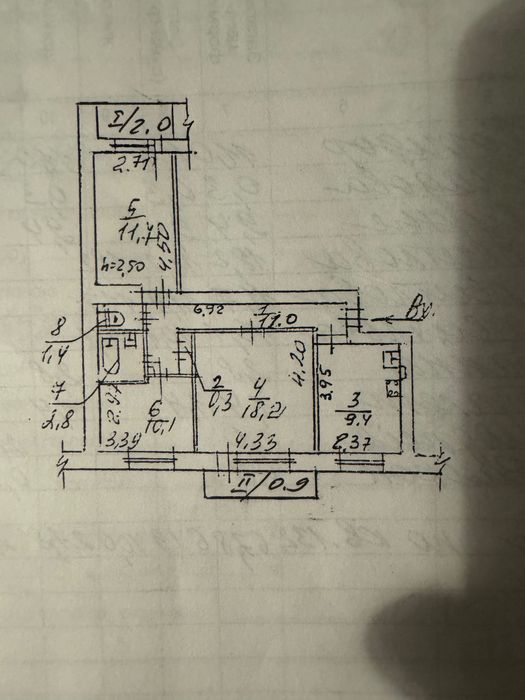 I/2.0
2.71
5
11,7
4.50
h=2,50
6,92
1
11.0
Вх.
8
1,4
7
2,8
2.97
6
10,1
3,39
2
0,3
4
18,2
4.20
4.33
3.95
3
9.4
2.37
II/0.9